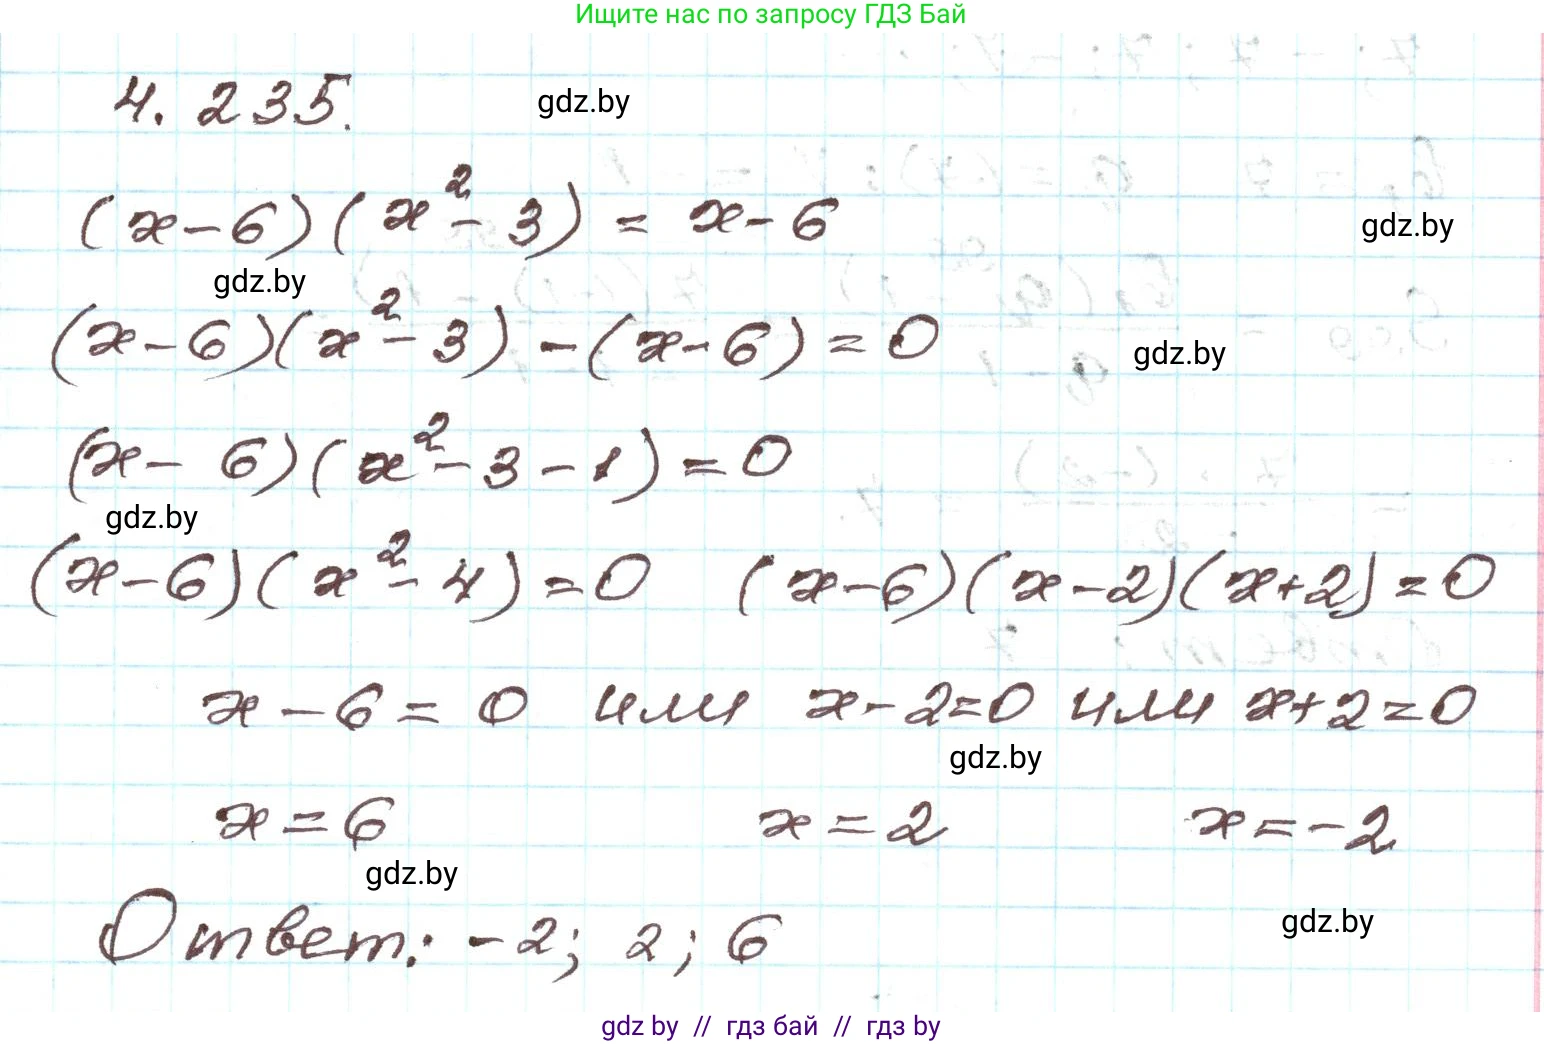 Ищите нас по запросу ГДЗ Бай
4.235.
gdz.by
(x-6)(x²-3) = x-6
gdz.by
gdz.by
(x-6)(x²-3) - (x-6) = 0
gdz.by
(x-6)(x²-3-1) = 0
gdz.by
(x-6)(x²-4) = 0 (x-6)(x-2)(x+2) = 0
x-6 = 0 или x-2=0 или x+2=0
gdz.by
x = 6 x = 2 x = -2
gdz.by
Ответ: -2; 2; 6
gdz.by
gdz by // гдз бай // гдз by